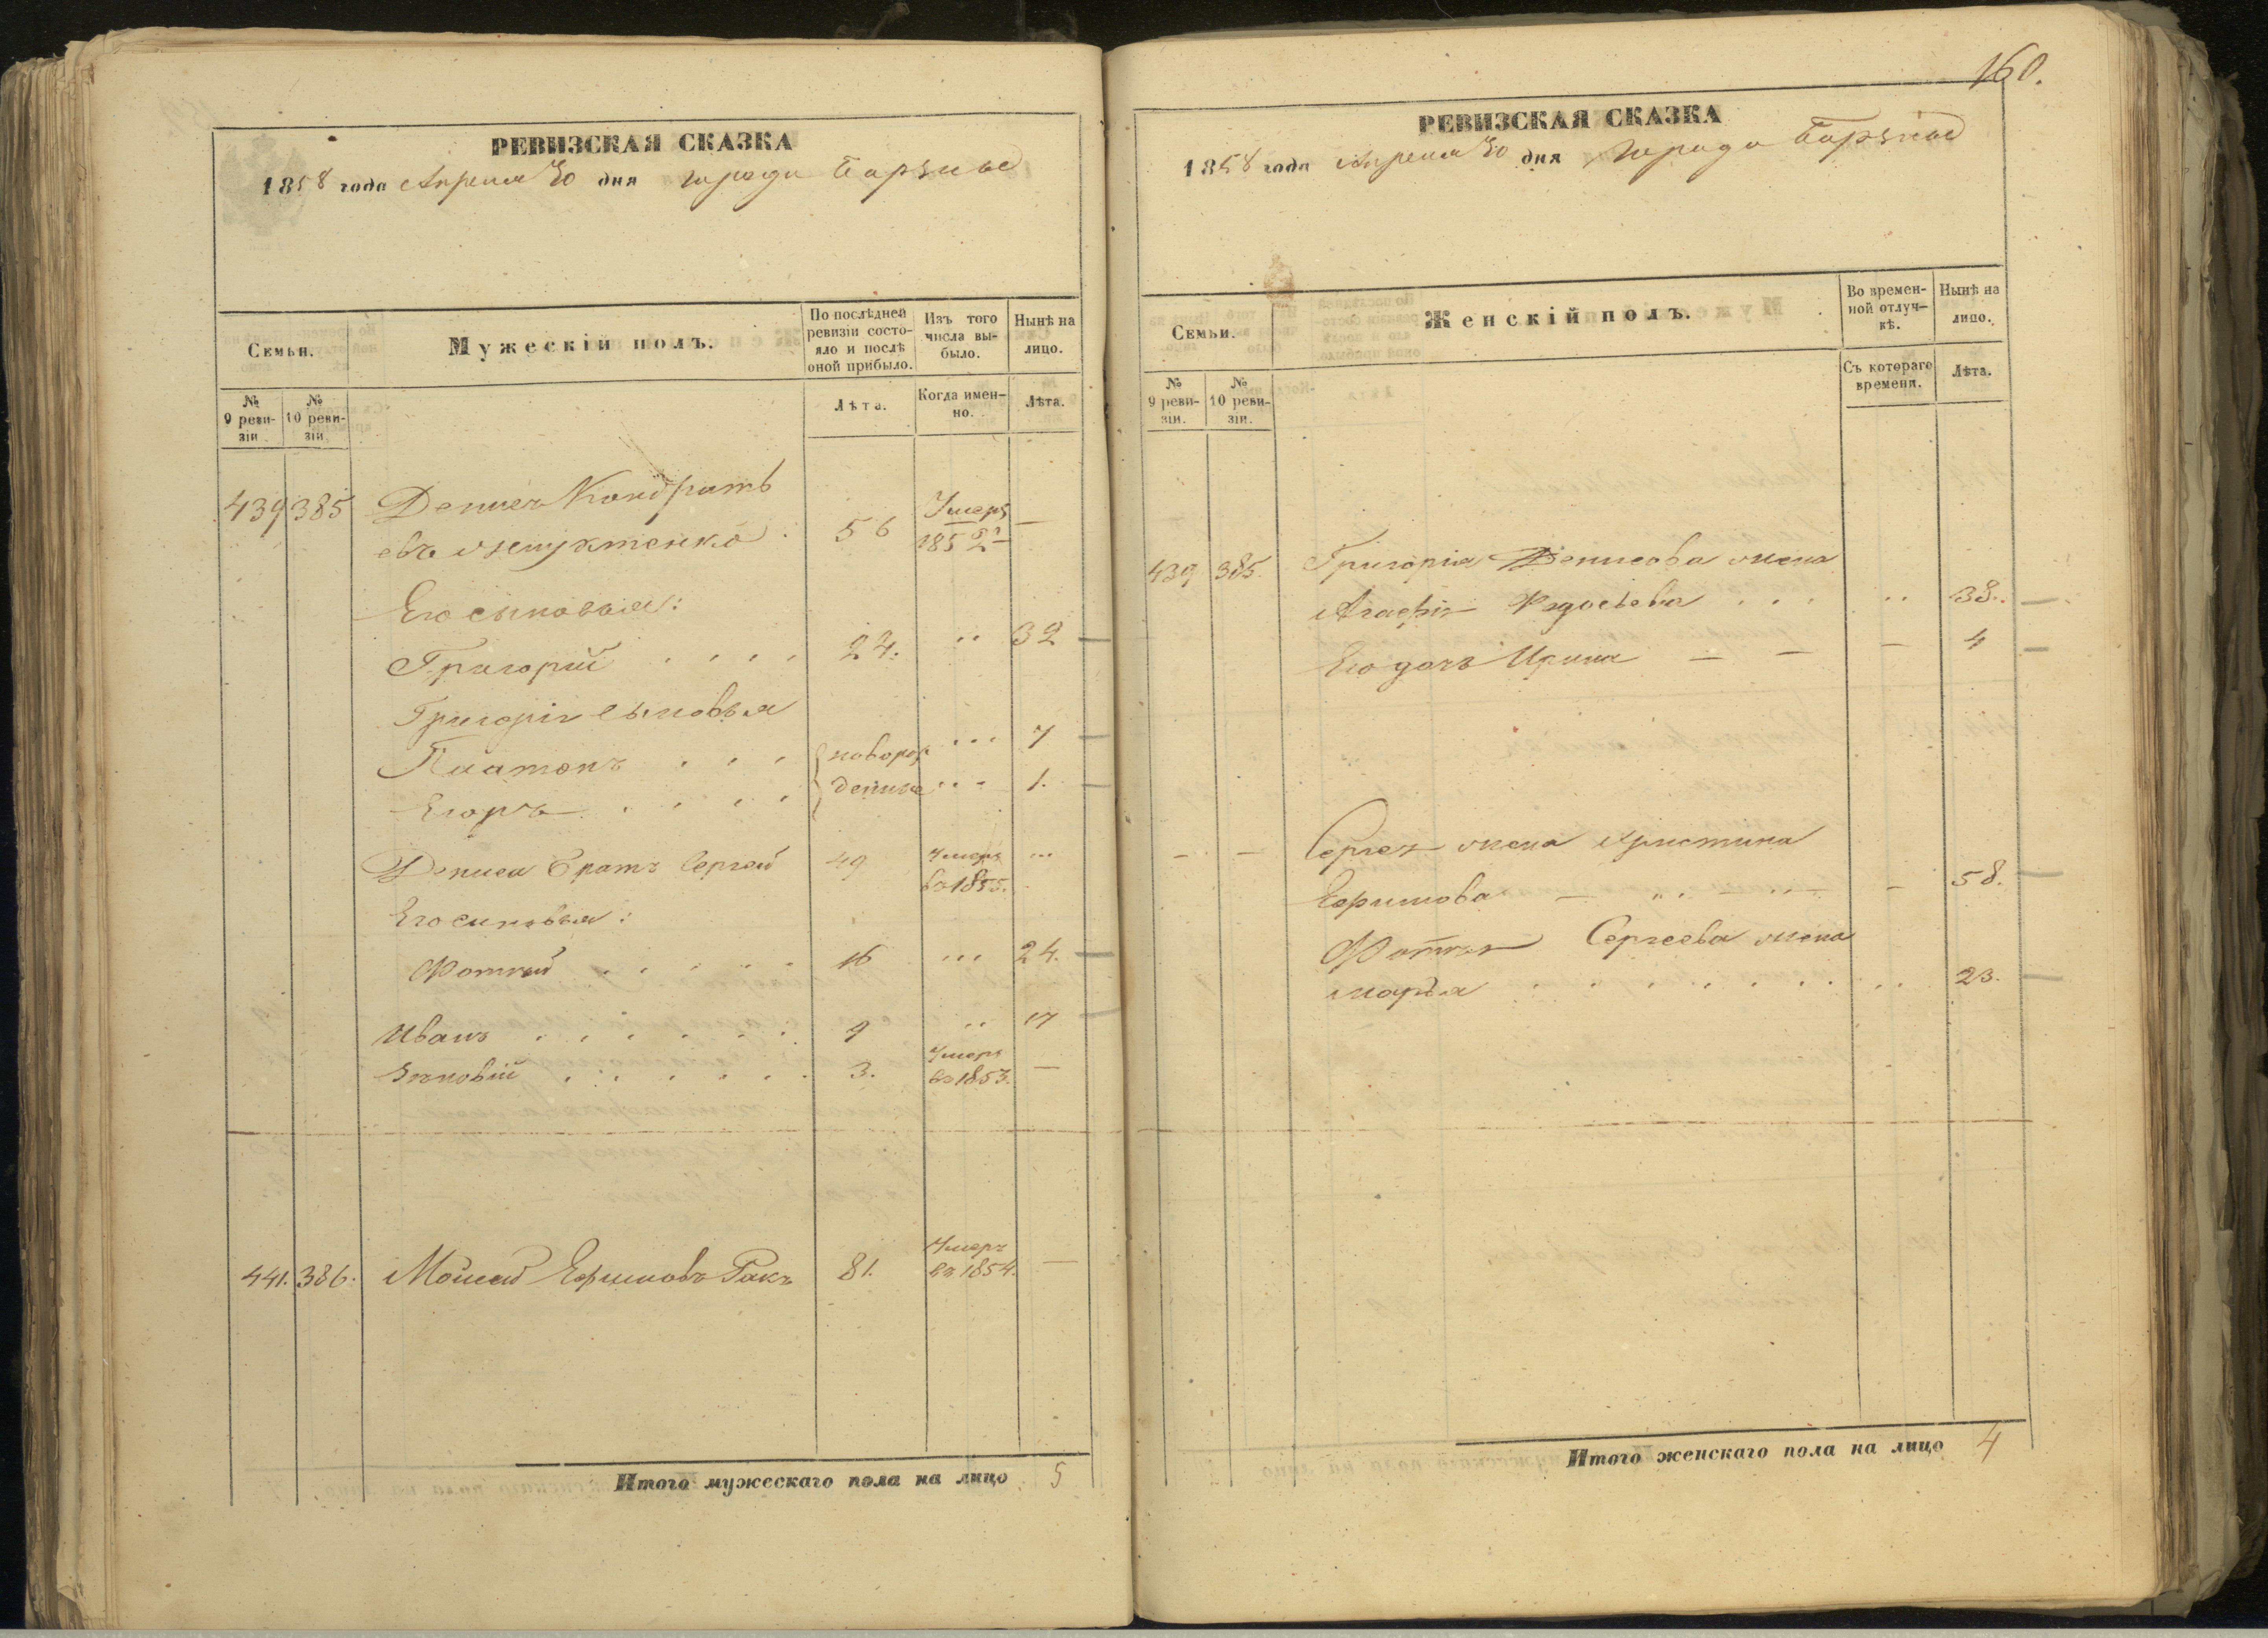 РЕВИЗСКАЯ СКАЗКА
1858 года Апреля 30 дня города Борзны
Семьи.
Мужескій полъ.
По послѣдней ревизіи состояло и послѣ оной прибыло.
Изъ того числа выбыло.
Нынѣ на лицо.
№ 9 ревизіи.
№ 10 ревизіи.
Лѣта.
Когда именно.
Лѣта.
439 385 Денисъ Кондратъ
евъ 56 Умеръ 1852 —
Его сыновья:
Григорій 24. 32
Григорія сыновья
Платонъ новорож 7
Егоръ денные 1.
Дениса братъ Сергей 49 Умеръ въ 1855.
Его сыновья:
Фотій 16 24.
Иванъ 9 17
Зиновій 3. Умеръ въ 1853. —
441. 386. Моисей Ефимовъ Ракъ 81. Умеръ въ 1854. —
Итого мужескаго пола на лицо 5
160.
РЕВИЗСКАЯ СКАЗКА
1858 года Апреля 30 дня города Борзны
Семьи.
Женскій полъ.
Во временной отлучкѣ.
Нынѣ на лицо.
№ 9 ревизіи.
№ 10 ревизіи.
Съ котораго времени.
Лѣта.
439 385. Григорія Денисова жена
Агафія Федосѣева 38.
Его дочь Ирина — — — 4
— — Сергея жена Христина
Ефимова — — 58.
Фотія Сергеева жена
Марья 23.
Итого женскаго пола на лицо 4